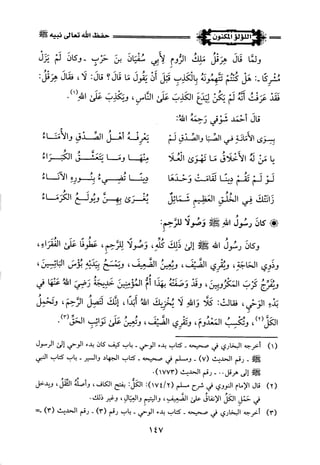 حفظ الله تعالى نبيه ﷺ
اللؤلؤ المكنون
ولما قال هرقل ملك الروم لأبي سفيان بن حرب ـ وكان لم يزل
مشركا ـ: هل كنتم تتهمونه بالكذب قبل أن يقول ما قال؟ قال: لا، فقال هرقل:
فقد عرفت أنه لم يكن ليدع الكذب على الناس، ويكذب على الله(١).
قال أحمد شوقي رحمه الله:
بسوى الأمانة في الصبا والصدق لم يعرفه أهل الصدق والأمناء
يا من له الأخلاق ما تهوى العلا منها وما يتعشق الكبراء
لو لم تقم دينا لقامت وحدها دينا تضيء بنوره الآناء
زانتك في الخلق العظيم شمائل يغرى بهن ويولع الكرماء
❁ كان رسول الله ﷺ وصولا للرحم:
وكان رسول الله ﷺ إلى ذلك كله، وصولا للرحم، عطوفا على الفقراء،
وذوي الحاجة، ويقري الضيف، ويعين الضعيف، ويمسح بيديه بؤس البائسين،
ويفرج كرب المكروبين، وقد وصفته بهذا أم المؤمنين خديجة رضي الله عنها في
بدء الوحي، فقالت: كلا والله لا يخزيك الله أبدا، إنك لتصل الرحم، وتحمل
الكل(٢)، وتكسب المعدوم، وتقري الضيف، وتعين على نوائب الحق(٣).
(١) أخرجه البخاري في صحيحه ـ كتاب بدء الوحي ـ باب كيف كان بدء الوحي إلى الرسول
ﷺ ـ رقم الحديث (٧) ـ ومسلم في صحيحه ـ كتاب الجهاد والسير ـ باب كتاب النبي
ﷺ إلى هرقل .. ـ رقم الحديث (١٧٧٣).
(٢) قال الإمام النووي في شرح مسلم (١٧٤/٢): الكل: بفتح الكاف، وأصله الثقل، ويدخل
في حمل الكل الإنفاق على الضعيف، واليتيم والعيال، وغير ذلك.
(٣) أخرجه البخاري في صحيحه ـ كتاب بدء الوحي ـ باب رقم (٣) ـ رقم الحديث (٣) ـ =
١٤٧